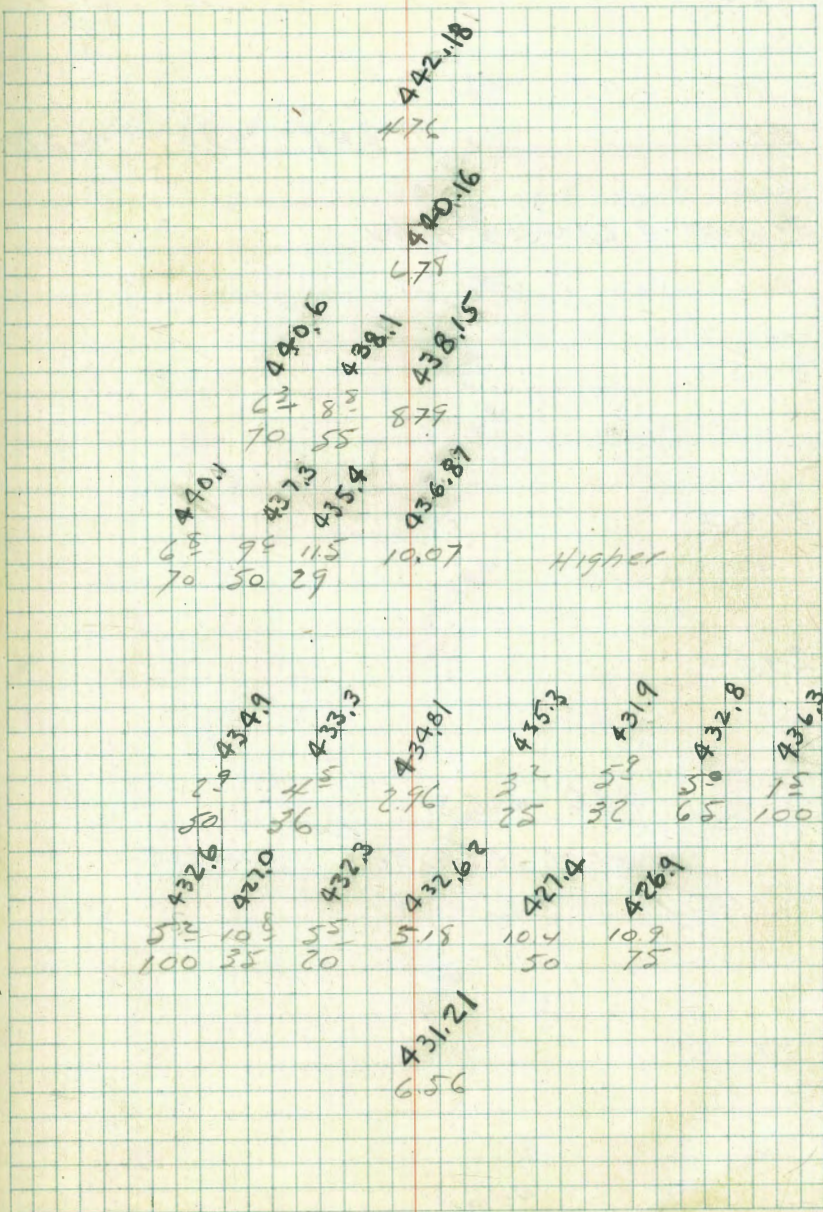 442.18
4.76
440.16
6.78
440.6 438.1 438.15
6.3 8.8 8.79
70 55
440.1 437.3 435.4 436.87
6.8 9.6 11.5 10.07 Higher
70 50 29
434.9 433.3 434.81 435.3 431.9 432.8 436.3
2.9 4.5 2.96 3.2 5.9 5.0 1.5
50 36 25 32 65 100
432.6 427.0 432.3 432.62 427.4 426.9
5.2 10.8 5.5 5.18 10.4 10.9
100 35 20 50 75
431.21
6.56